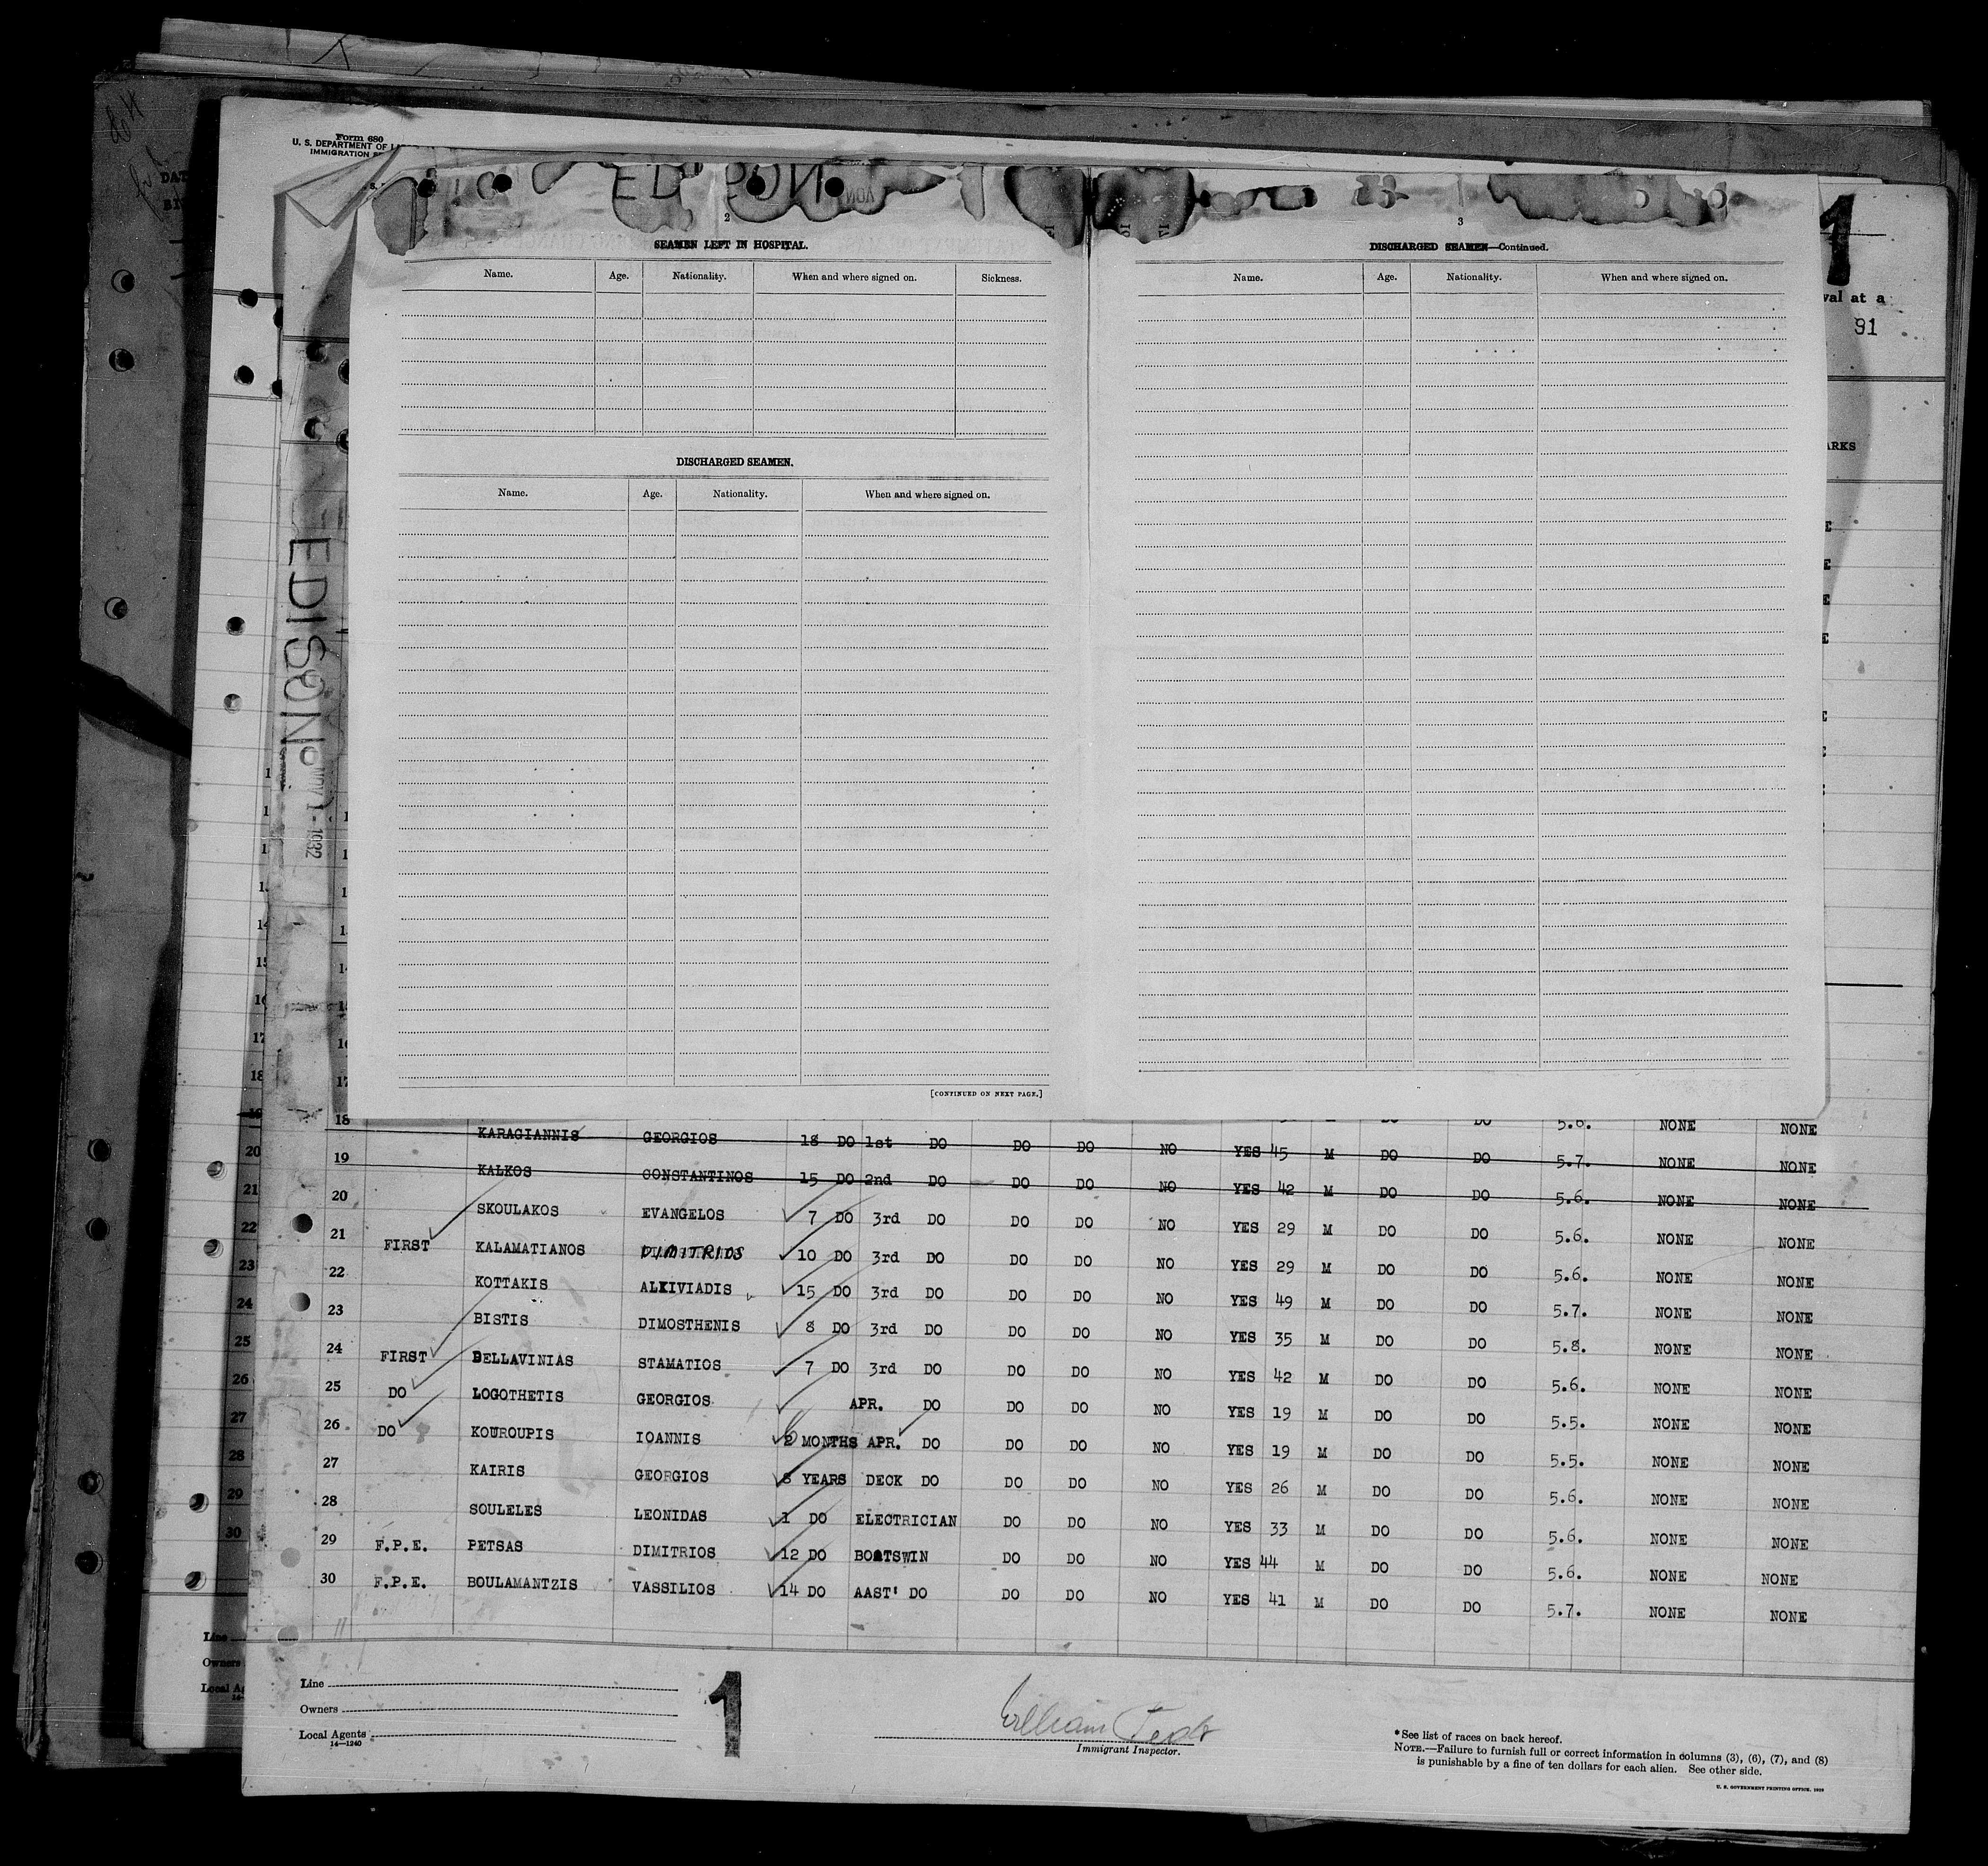 Form 680
U. S. DEPARTMENT OF
IMMIGRATION
EDISON
EDISON
NOV 1 - 1932
1
val at a
91
ARKS
2
SEAMEN LEFT IN HOSPITAL.
Name. Age. Nationality. When and where signed on. Sickness.
DISCHARGED SEAMEN.
Name. Age. Nationality. When and where signed on.
[CONTINUED ON NEXT PAGE.]
3
DISCHARGED SEAMEN—Continued.
Name. Age. Nationality. When and where signed on.
5.6. NONE NONE
18 KARAGIANNIS GEORGIOS 18 DO 1st DO DO DO NO YES 45 M DO DO 5.7. NONE NONE
19 KALKOS CONSTANTINOS 15 DO 2nd DO DO DO NO YES 42 M DO DO 5.6. NONE NONE
20 SKOULAKOS EVANGELOS 7 DO 3rd DO DO DO NO YES 29 M DO DO 5.6. NONE NONE
21 FIRST KALAMATIANOS DIMITRIOS 10 DO 3rd DO DO DO NO YES 29 M DO DO 5.6. NONE NONE
22 KOTTAKIS ALKIVIADIS 15 DO 3rd DO DO DO NO YES 49 M DO DO 5.7. NONE NONE
23 BISTIS DIMOSTHENIS 8 DO 3rd DO DO DO NO YES 35 M DO DO 5.8. NONE NONE
24 FIRST DELLAVINIAS STAMATIOS 7 DO 3rd DO DO DO NO YES 42 M DO DO 5.6. NONE NONE
25 DO LOGOTHETIS GEORGIOS APR. DO DO DO NO YES 19 M DO DO 5.5. NONE NONE
26 DO KOUROUPIS IOANNIS MONTHS APR. DO DO DO NO YES 19 M DO DO 5.5. NONE NONE
27 KAIRIS GEORGIOS 8 YEARS DECK DO DO DO NO YES 26 M DO DO 5.6. NONE NONE
28 SOULELES LEONIDAS 1 DO ELECTRICIAN DO DO NO YES 33 M DO DO 5.6. NONE NONE
29 F.P.E. PETSAS DIMITRIOS 12 DO BOATSWIN DO DO NO YES 44 M DO DO 5.6. NONE NONE
30 F.P.E. BOULAMANTZIS VASSILIOS 14 DO AAST' DO DO DO NO YES 41 M DO DO 5.7. NONE NONE
Line
Owners
Local Agents
14—1240
1
William
Immigrant Inspector.
*See list of races on back hereof.
NOTE.—Failure to furnish full or correct information in columns (3), (6), (7), and (8)
is punishable by a fine of ten dollars for each alien. See other side.
U. S. GOVERNMENT PRINTING OFFICE.